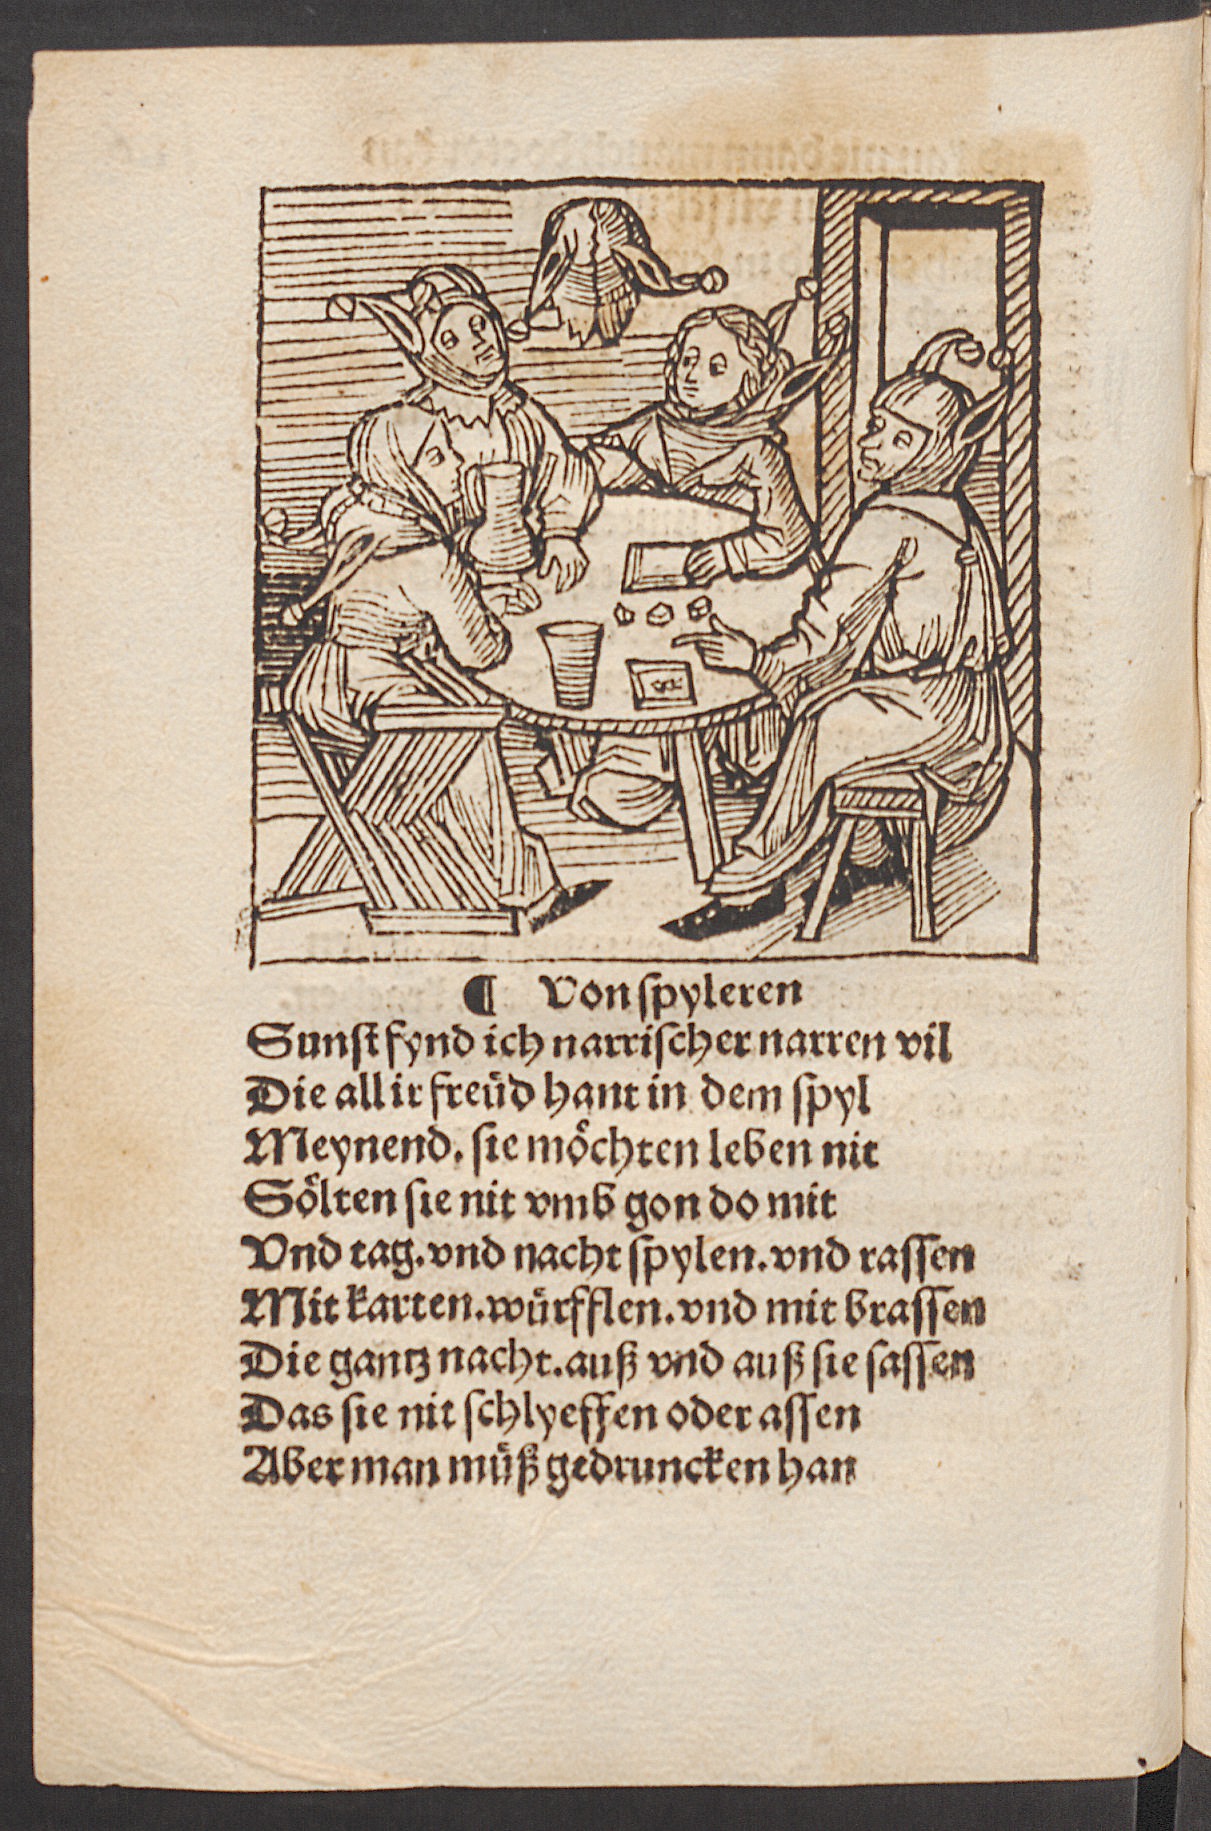 ¶ Von ſpyleren
Sunſt fynd ich narriſcher narren vil
Die all ir freüd hant in dem ſpyl
Meynend, ſie möchten leben nit
Sölten ſie nit vmb gon do mit
Vnd tag. vnd nacht ſpylen. vnd raſſen
Mit karten. würfflen. vnd mit braſſen
Die gantz nacht. auß vnd auß ſie ſaſſen
Das ſie nit ſchlyeffen oder aſſen
Aber man müß gedruncken han